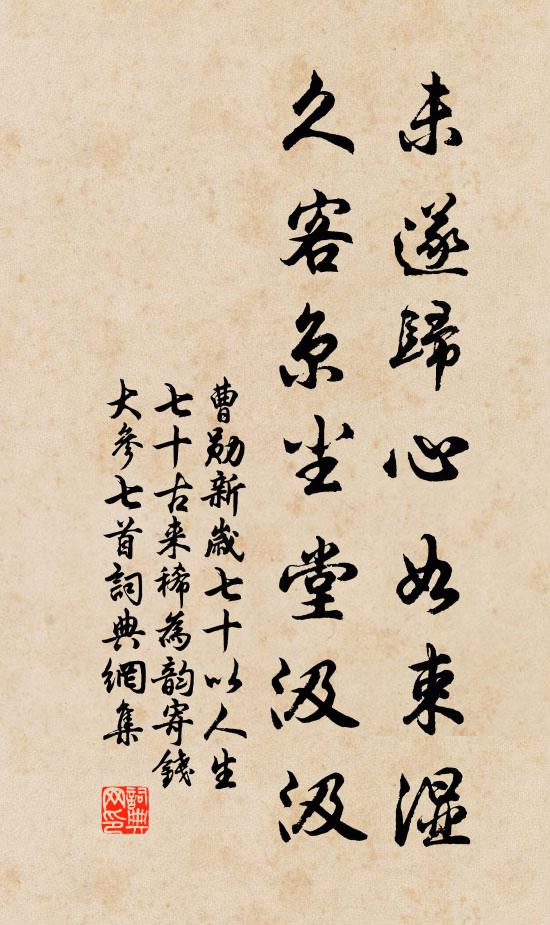 未遂歸心如束湿
久客京尘堂汲汲
曹勛新歲七十以人生
七十古来稀為韵寄錢
大参七首詞典網集
詞典网印